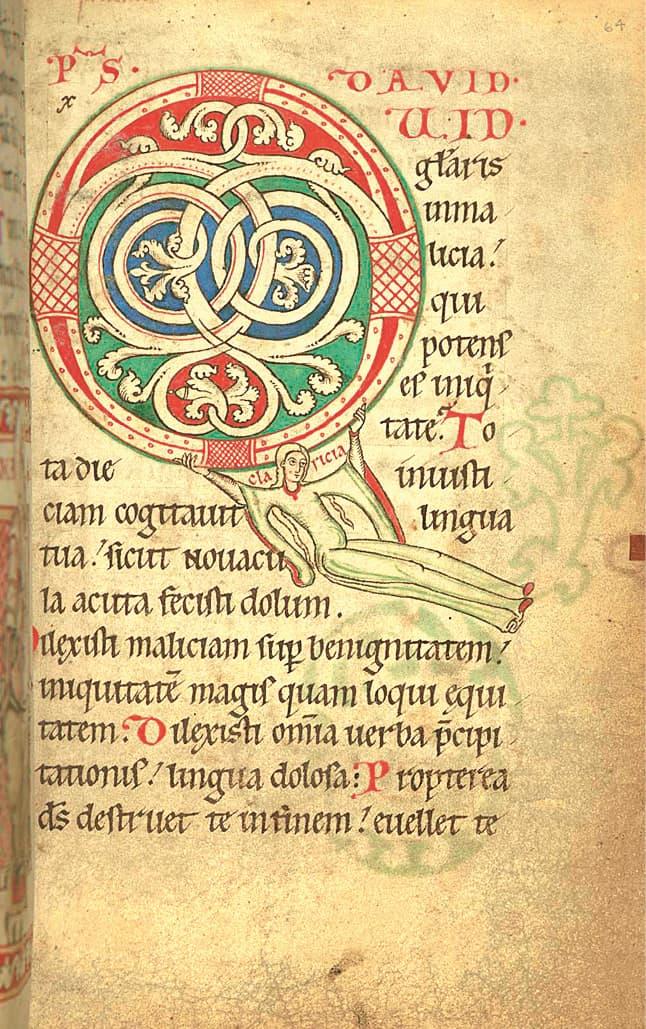 64
PS. DAVID.
x
QUID.
gl̄aris
inma
licia!
qui
potens
es iniq̇
tate? To
ta die iniusti
claricia
ciam cogitauit lingua
tua! sicut nouacu
la acuta fecisti dolum.
Dilexisti maliciam sup̱ benignitatem!
iniquitatē magis quam loqui ęqui
tatem. Dilexisti om̄ia uerba p̄cipi
tationis! lingua dolosa: Propterea
ds̄ destruet te in finem! euellet te